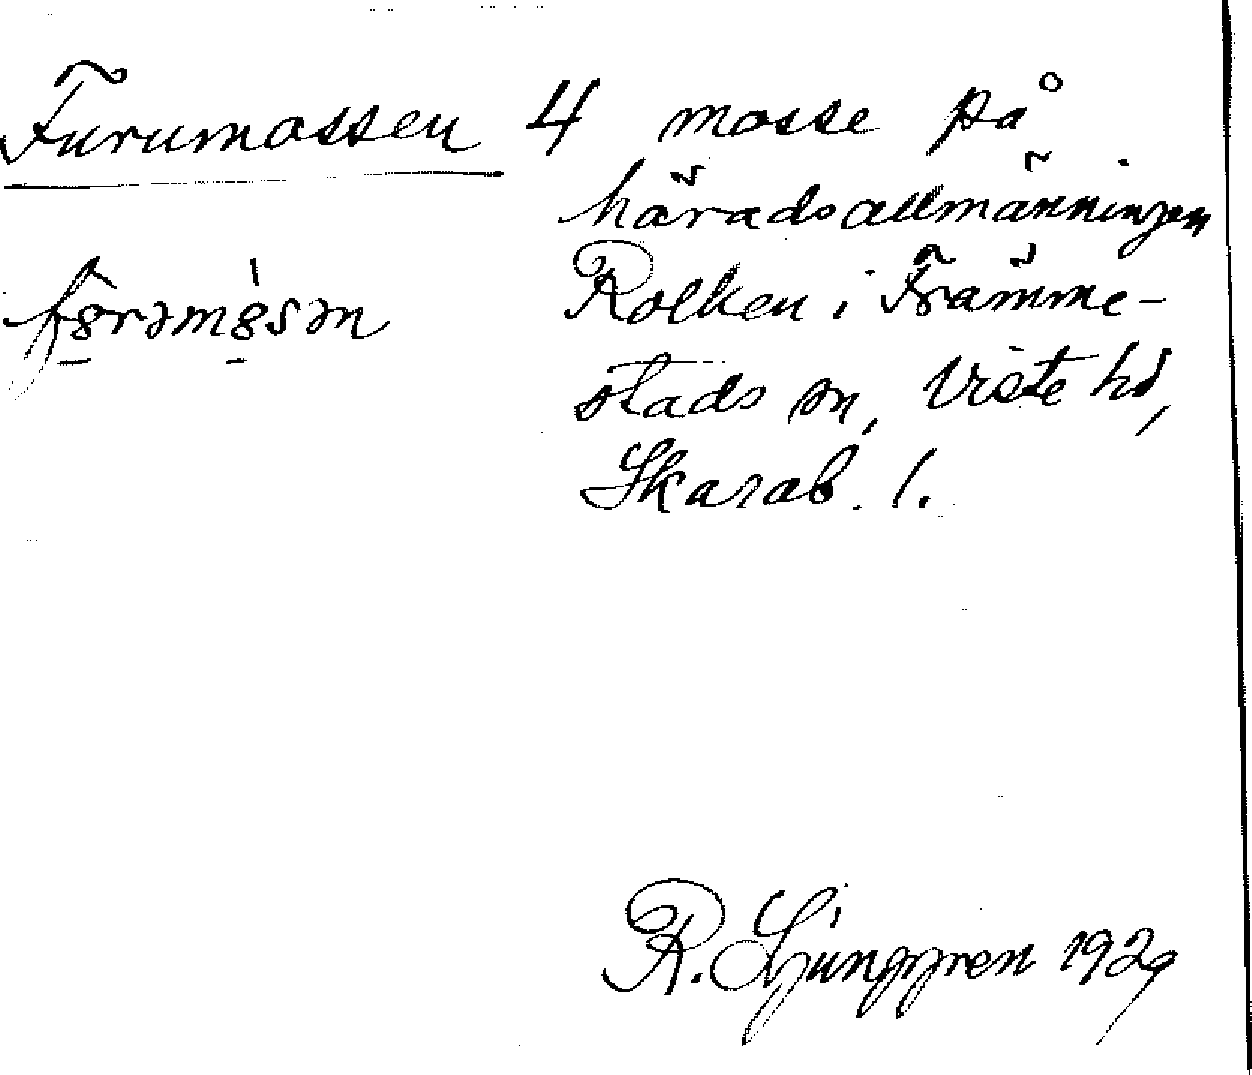 Furumossen 4 mosse på
häradsallmänningen
Rolken i Främme-
stads sn, Viste hd,
Skarab. l.
R. Ljunggren 1929